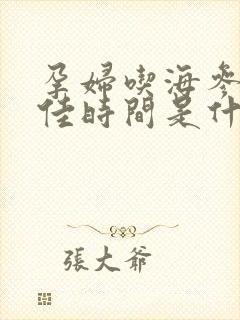 孕婦喫海參
佳時間是什
張大爺